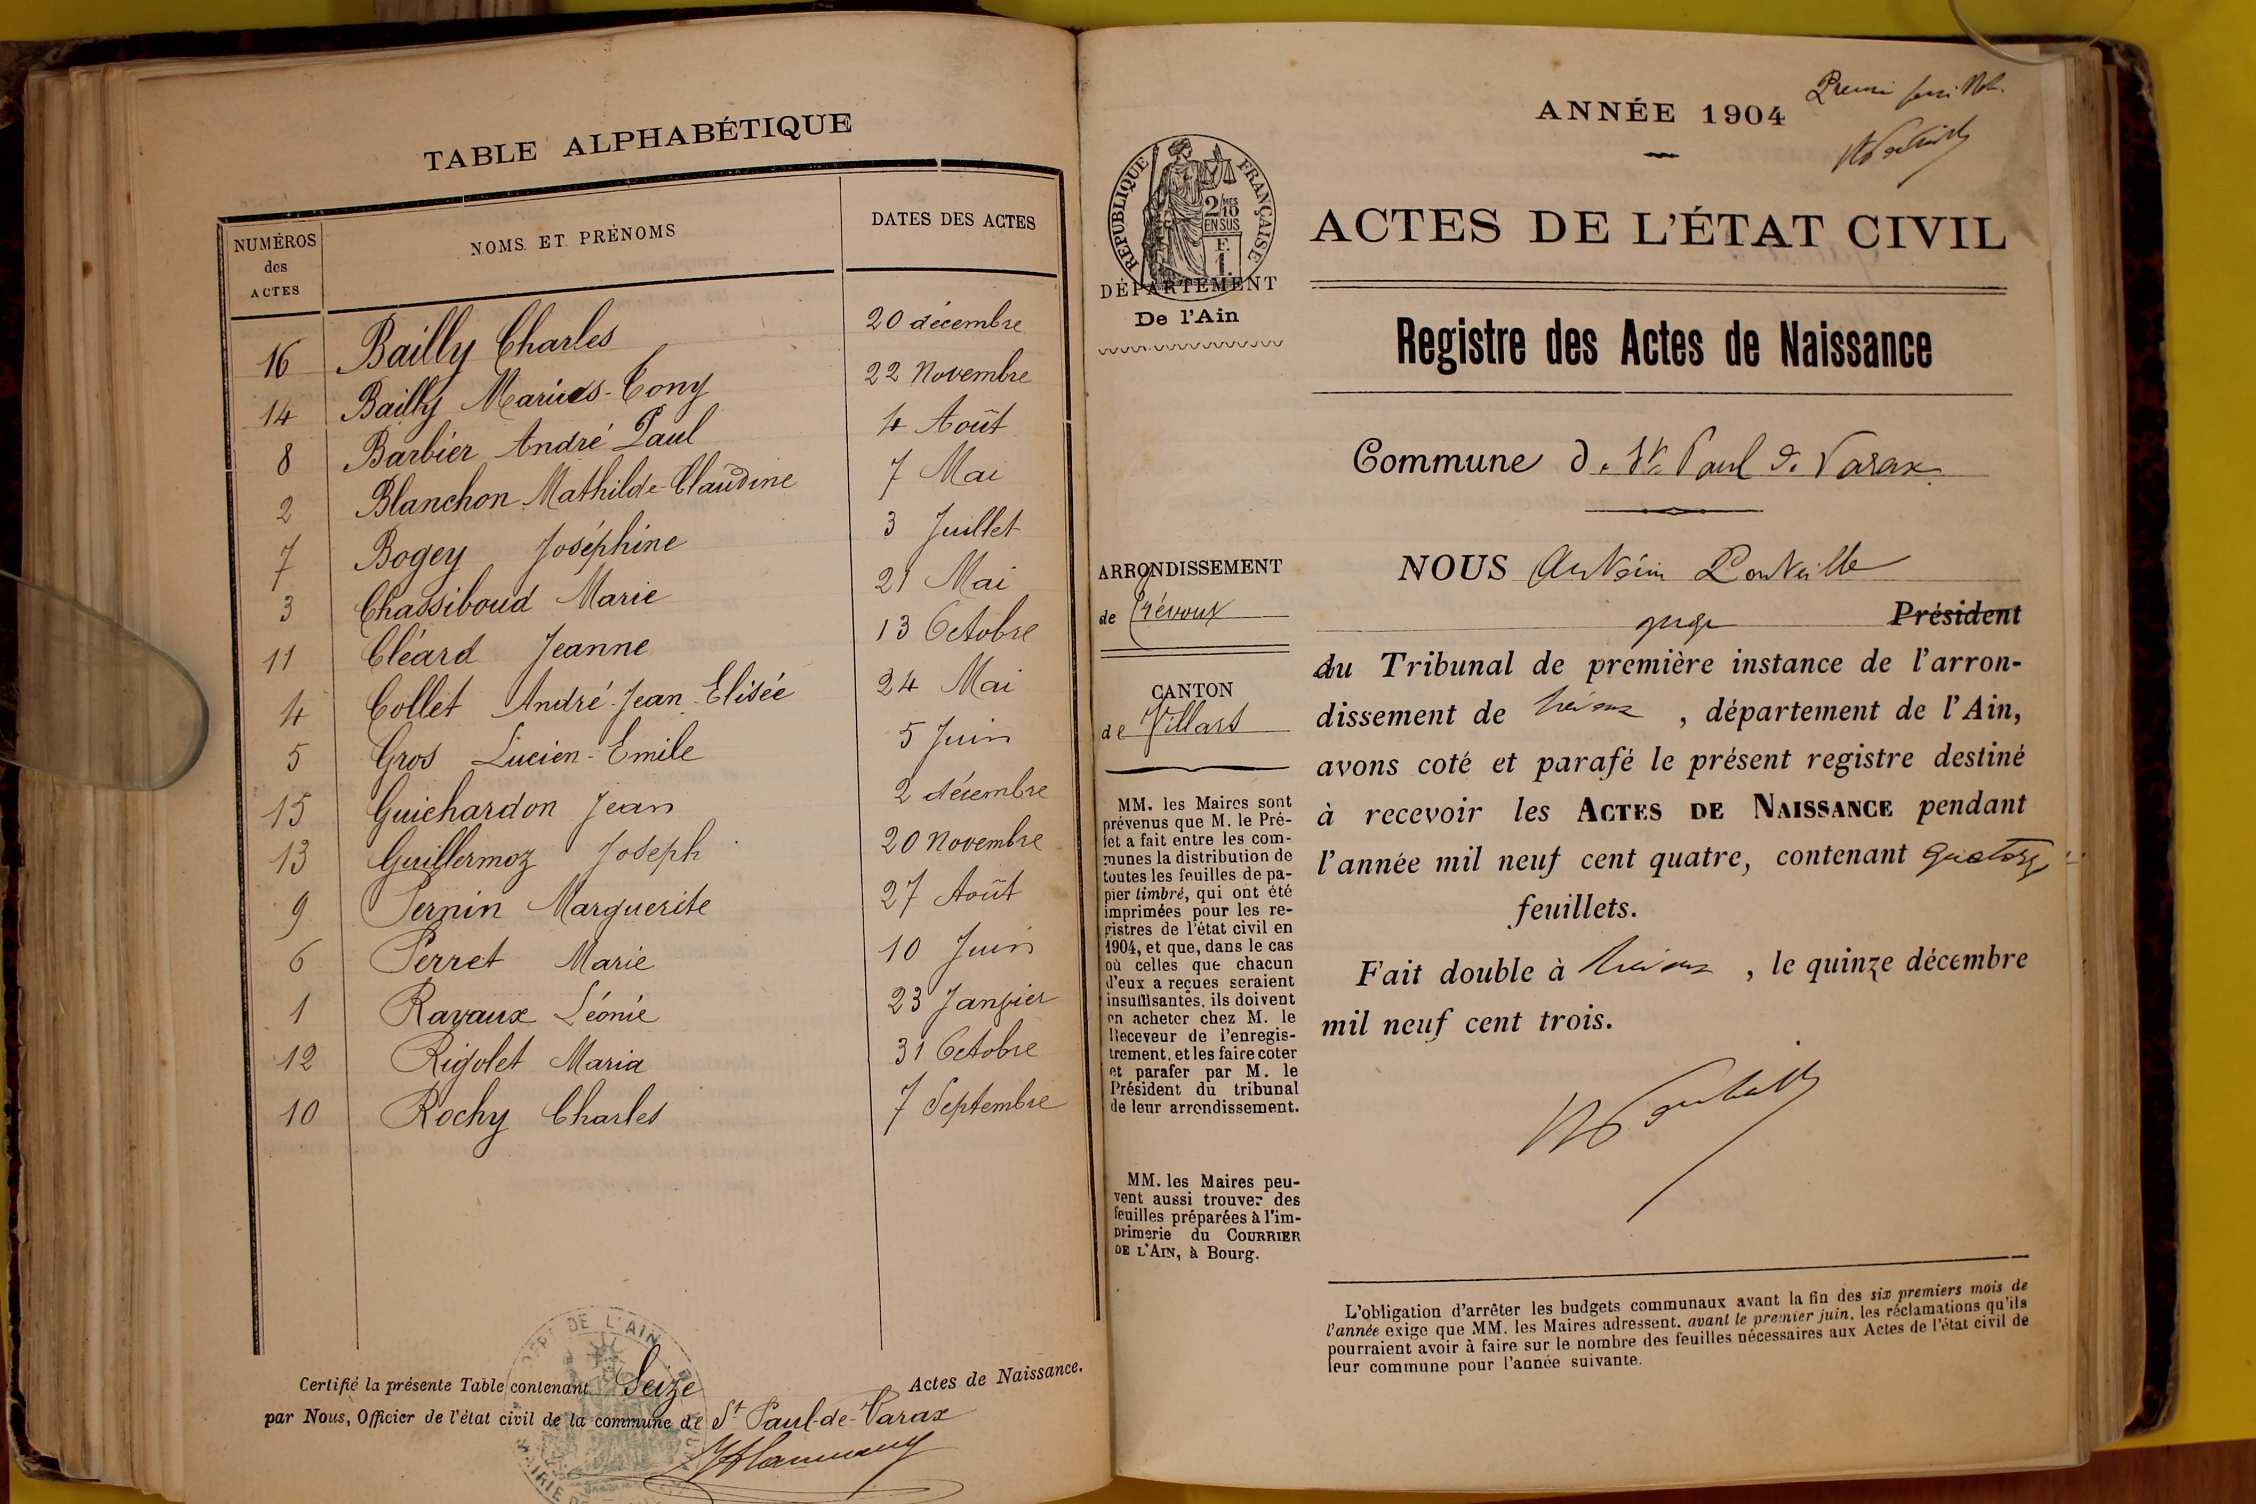 TABLE ALPHABÉTIQUE
NUMÉROS des ACTES NOMS ET PRÉNOMS DATES DES ACTES
16 Bailly Charles 20 décembre
14 Bailly Marius-Tony 22 Novembre
8 Barbier André Paul 4 Août
2 Blanchon Mathilde-Claudine 7 Mai
7 Bogey Joséphine 3 Juillet
3 Chassiboud Marie 21 Mai
11 Cléard Jeanne 13 Octobre
4 Collet André-Jean-Elisée 24 Mai
5 Gros Lucien-Emile 5 Juin
15 Guichardon Jean 2 décembre
13 Guillermoz Joseph 20 Novembre
9 Pernin Marguerite 27 Août
6 Perret Marie 10 Juin
1 Ravaux Léonie 23 Janvier
12 Rigolet Maria 31 Octobre
10 Rochy Charles 7 Septembre
Certifié la présente Table contenant Seize Actes de Naissance.
par Nous, Officier de l'état civil de la commune de St Paul-de-Varax
DEPT DE L'AIN
MAIRIE
ANNÉE 1904
Premier feuillet.
RÉPUBLIQUE FRANÇAISE
2/MES 10
EN SUS
F.
1.
DÉPARTEMENT
De l'Ain
ACTES DE L'ÉTAT CIVIL
Registre des Actes de Naissance
Commune de St Paul de Varax
ARRONDISSEMENT
de Trévoux
CANTON
de Villars
MM. les Maires sont
prévenus que M. le Pré-
fet a fait entre les com-
munes la distribution de
toutes les feuilles de pa-
pier timbré, qui ont été
imprimées pour les re-
gistres de l'état civil en
1904, et que, dans le cas
où celles que chacun
d'eux a reçues seraient
insuffisantes, ils doivent
en acheter chez M. le
Receveur de l'enregis-
trement, et les faire coter
et parafer par M. le
Président du tribunal
de leur arrondissement.
MM. les Maires peu-
vent aussi trouver des
feuilles préparées à l'im-
primerie du COURRIER
DE L'AIN, à Bourg.
NOUS Antonin
juge Président
du Tribunal de première instance de l'arron-
dissement de Trévoux, département de l'Ain,
avons coté et parafé le présent registre destiné
à recevoir les ACTES DE NAISSANCE pendant
l'année mil neuf cent quatre, contenant quatorze
feuillets.
Fait double à Trévoux, le quinze décembre
mil neuf cent trois.
L'obligation d'arrêter les budgets communaux avant la fin des six premiers mois de
l'année exige que MM. les Maires adressent, avant le premier juin, les réclamations qu'ils
pourraient avoir à faire sur le nombre des feuilles nécessaires aux Actes de l'état civil de
leur commune pour l'année suivante.